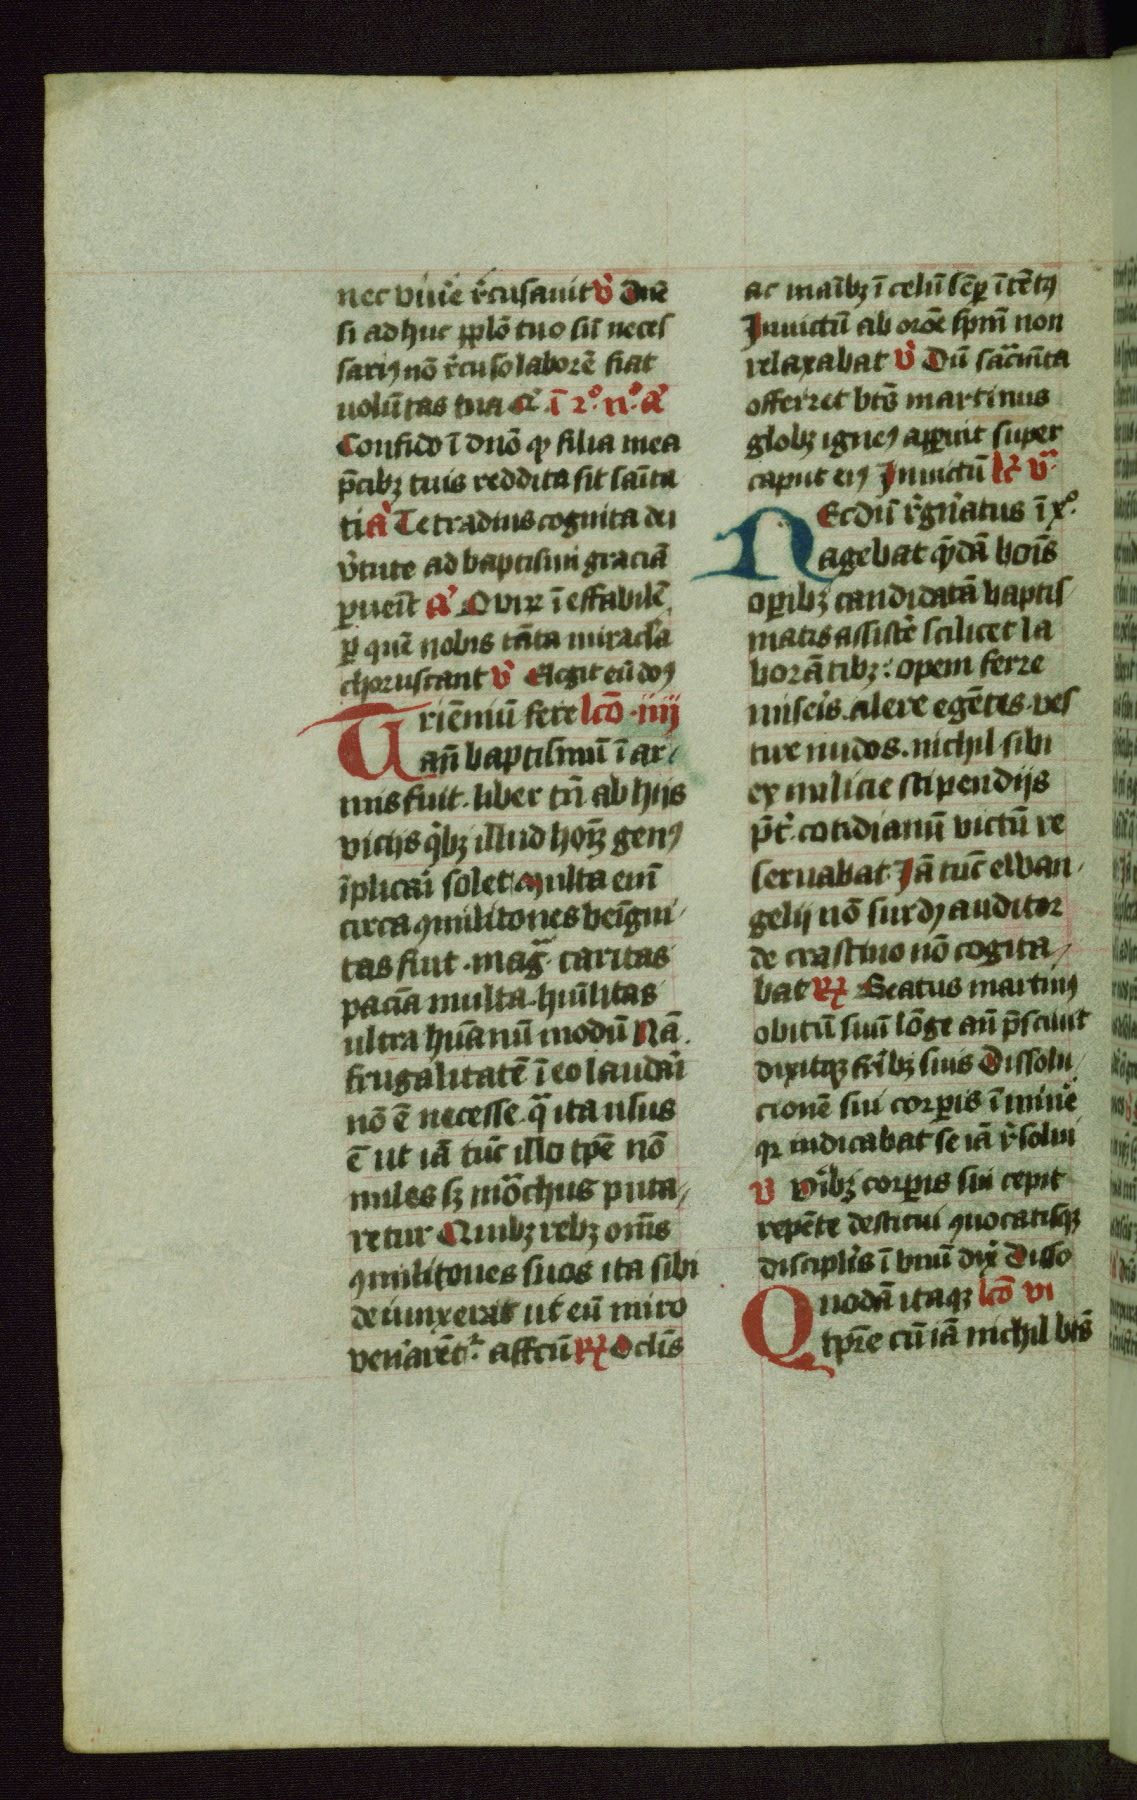 nec viu'e r̉cusauit v̉ Dn̄e
si adhuc pp̄lō tuo sū neces
sariꝰ nō r̉cuso laborē fiat
volūtas tua ā ī 2º nº a̓
Confido ī dnō qꝫ filia mea
p̄cibꝫ tuis reddita sit sāita
ti a̓ Tetradius cognita dei
v̓tute ad baptismi graciā
ꝑueīt a̓ O virꝫ īeffabilē
ꝑ quē nobis tāta miracl̄a
choruscant v̓ Elegit eū dōs
Triēniū fere lcō ·iiij
an̄ baptismū ī ar
mis fuit. liber tn̄ ab hijs
vicijs q̓bꝫ illud hoīꝫ genꝰ
īplicari solet Multa enī
circa ꝯmilitones beīgni
tas fuit · mag̃ caritas
paciā multa. hūilitas
ultra huānū modū Nā
frugalitatē ī eo laudari
nō ē necesse. q̄ ita usus
ē ut iā tūc illo tp̄e nō
miles sꝫ mōchus puta
retur Quibꝫ rebꝫ om̄s
ꝯmilitones suos ita sibi
deiunxerat ut eū miro
ven'arēt᷑. affc̄ū R Oclīs
ac maībꝫ ī celū sēꝑ ītētꝰ
Inuictū ab orōe spm̄ non
relaxabat v̓ Dū sac̃mīta
offerret bt̄s martinus
globꝫ igneꝰ apꝑuit super
caput eiꝰ Inuictū lc̓ v̄
Necdū r̓gn̓atus ī xº
agebat q̓dā bois
oꝑibꝫ candidatā baptis
matis assist̓e scilicet la
borātibꝫ: opem ferre
mis̓eis. alere egētes. ves
tire nudos. nichil sibi
ex milicie stipendijs
p̄t̓. cotidianū victū re
seruabat. Jā tūc ewan
gelij nō surdꝰ auditor
de crastino nō cogita
bat R Beatus martinꝰ
obitū suū lōge an̄ p̄sciuit
dixitqꝫ fr̄ibꝫ suis Dissolu
cionē sui corꝑis ī min̓e
qꝛ iudicabat se iā r̓solui
v Viribꝫ corꝑis sui cepit
repēte destitui ꝯuocatisqꝫ
discipl̓is ī vnū dix̓ Disso
Quodā itaqꝫ lcō vi
tp̄re cū iā nichil bt̄s